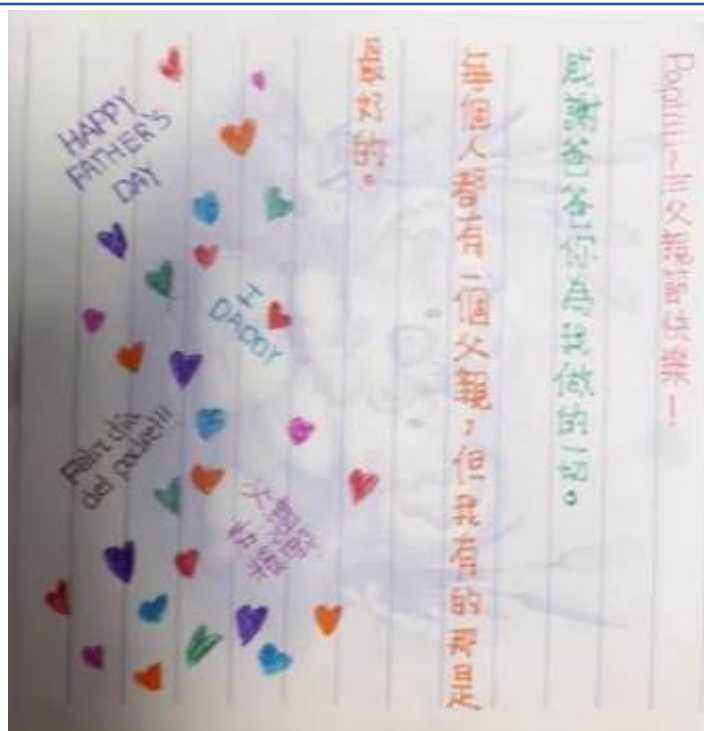 Papiii~三父親節快樂！
感謝爸爸你為我做的一切。
每個人都有一個父親，但我有的那是
最好的。
HAPPY
FATHER'S
DAY
DADDY
Feliz día
del padre!!!
父親節
快樂